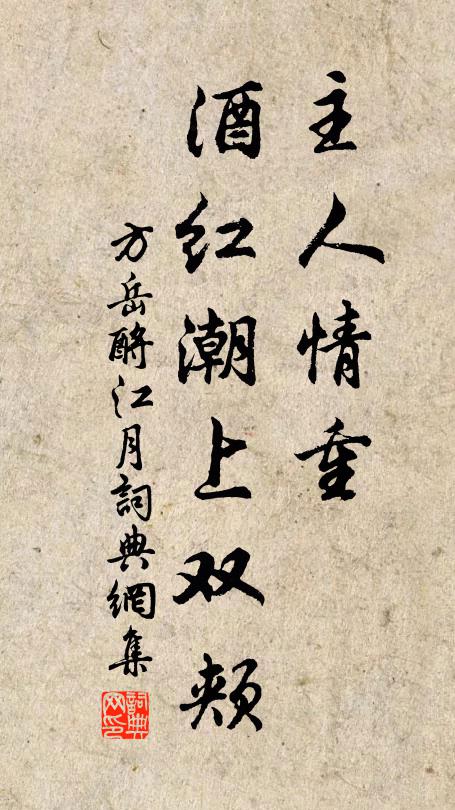 主人情重
酒红潮上双颊
方岳酹江月詞典網集
詞典网印